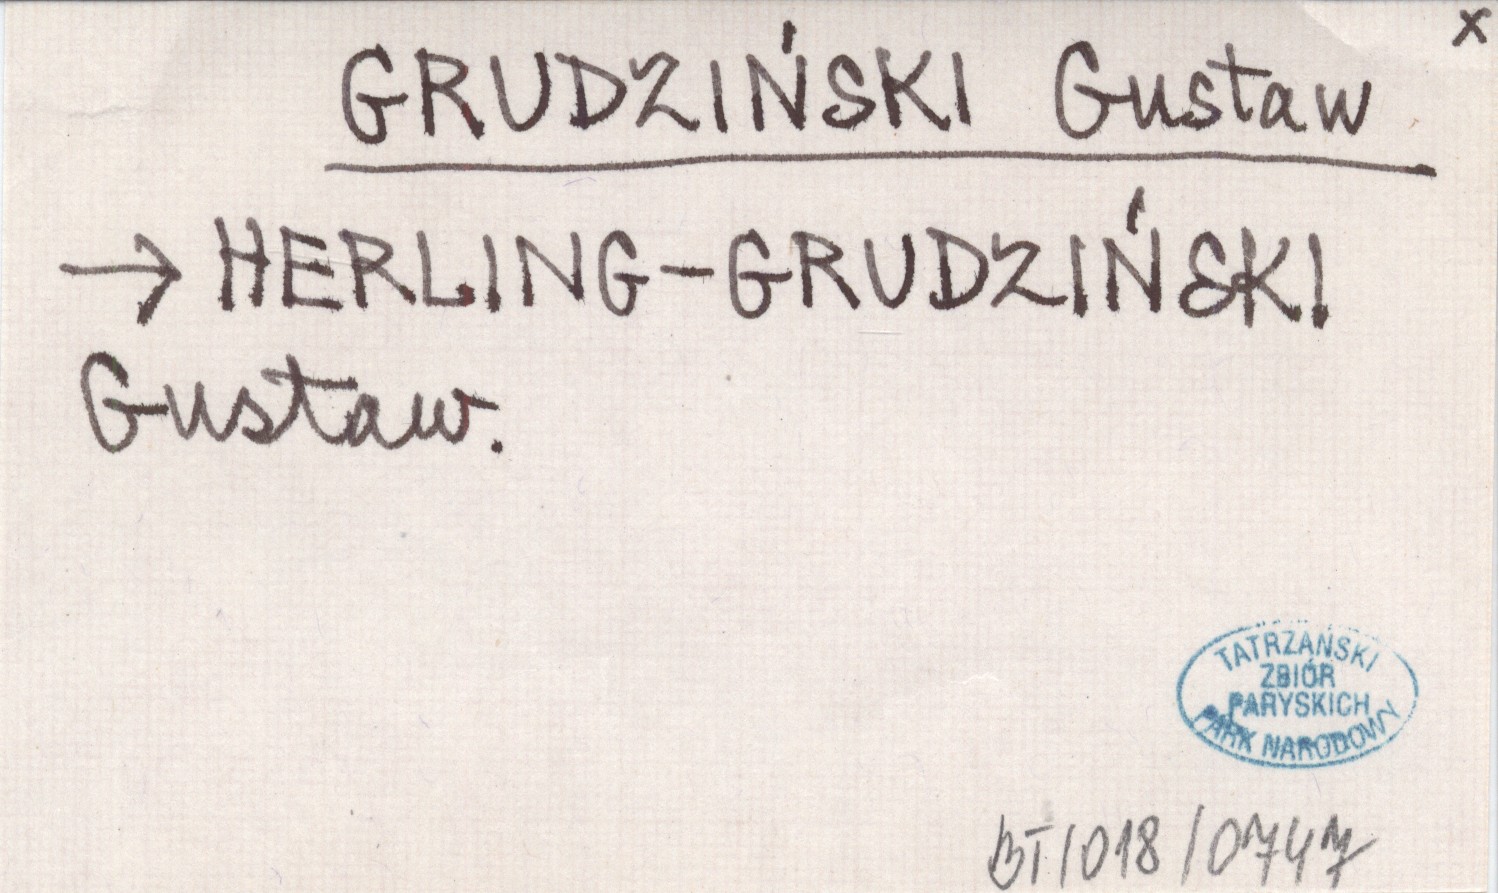 x
GRUDZIŃSKI Gustaw
→ HERLING-GRUDZIŃSKI
Gustaw.
TATRZAŃSKI
ZBIÓR
PARYSKICH
PARK NARODOWY
BT/018/0747